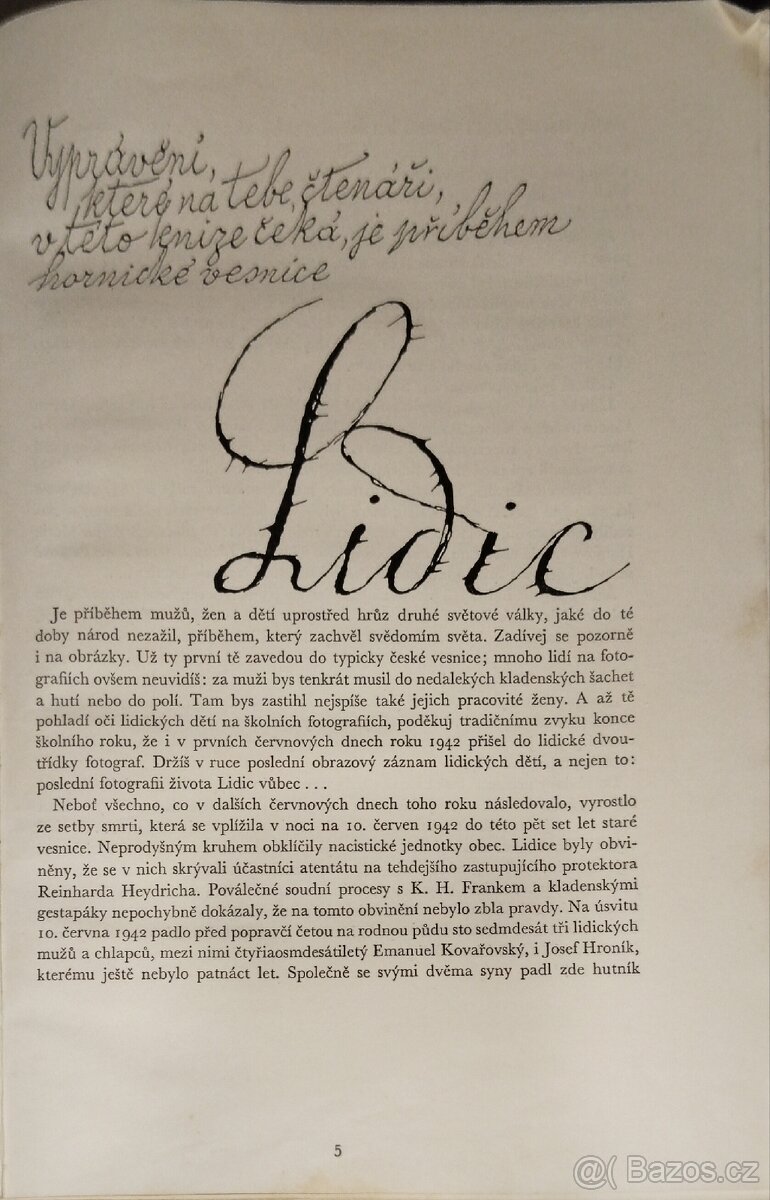 Vyprávění,
které na tebe, čtenáři,
v této knize čeká, je příběhem
hornické vesnice
Lidic
Je příběhem mužů, žen a dětí uprostřed hrůz druhé světové války, jaké do té
doby národ nezažil, příběhem, který zachvěl svědomím světa. Zadívej se pozorně
i na obrázky. Už ty první tě zavedou do typicky české vesnice; mnoho lidí na foto-
grafiích ovšem neuvidíš: za muži bys tenkrát musil do nedalekých kladenských šachet
a hutí nebo do polí. Tam bys zastihl nejspíše také jejich pracovité ženy. A až tě
pohladí oči lidických dětí na školních fotografiích, poděkuj tradičnímu zvyku konce
školního roku, že i v prvních červnových dnech roku 1942 přišel do lidické dvou-
třídky fotograf. Držíš v ruce poslední obrazový záznam lidických dětí, a nejen to:
poslední fotografii života Lidic vůbec . . .
Neboť všechno, co v dalších červnových dnech toho roku následovalo, vyrostlo
ze setby smrti, která se vplížila v noci na 10. červen 1942 do této pět set let staré
vesnice. Neprodyšným kruhem obklíčily nacistické jednotky obec. Lidice byly obvi-
něny, že se v nich skrývali účastníci atentátu na tehdejšího zastupujícího protektora
Reinharda Heydricha. Poválečné soudní procesy s K. H. Frankem a kladenskými
gestapáky nepochybně dokázaly, že na tomto obvinění nebylo zbla pravdy. Na úsvitu
10. června 1942 padlo před popravčí četou na rodnou půdu sto sedmdesát tři lidických
mužů a chlapců, mezi nimi čtyřiaosmdesátiletý Emanuel Kovařovský, i Josef Hroník,
kterému ještě nebylo patnáct let. Společně se svými dvěma syny padl zde hutník
5
@( Bazos.cz